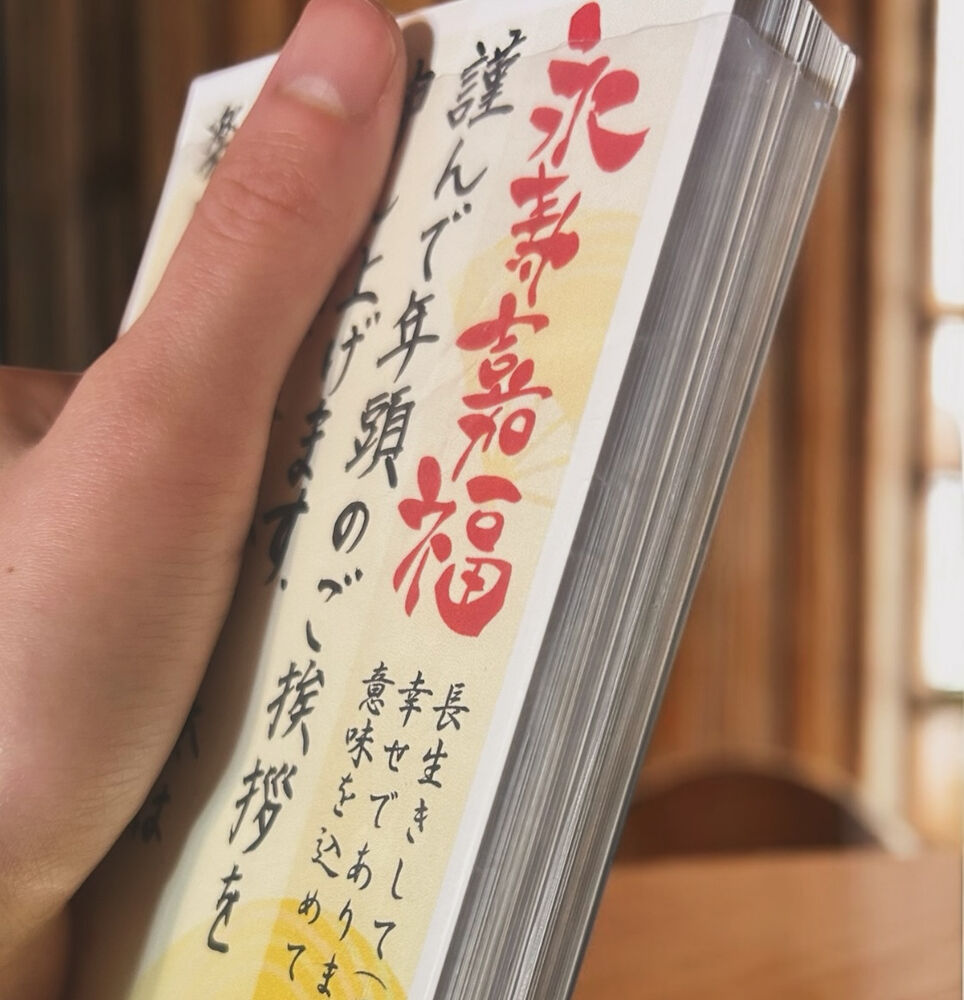 永寿嘉福
長生きして
幸せでありま
意味を込めて
謹んで年頭のご挨拶を
申し上げます。